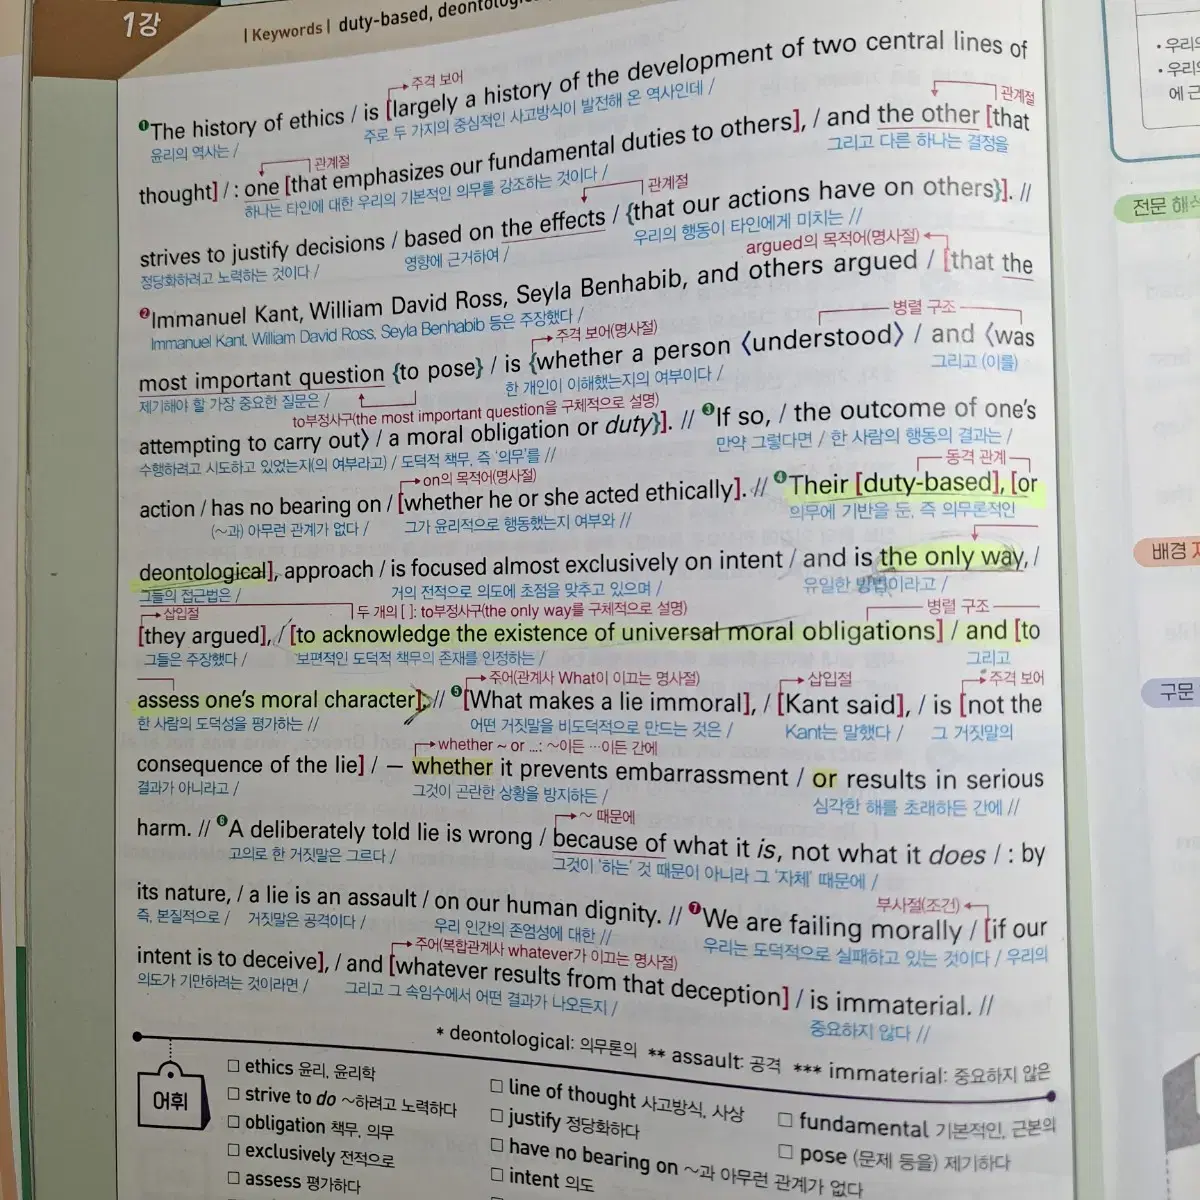 1강
| Keywords | duty-based,
주격 보어
❶The history of ethics / is [largely a history of the development of two central lines of
윤리의 역사는 / 주로 두 가지의 중심적인 사고방식이 발전해 온 역사인데 /
관계절 관계절
thought] / : one [that emphasizes our fundamental duties to others], / and the other [that
하나는 타인에 대한 우리의 기본적인 의무를 강조하는 것이다 / 그리고 다른 하나는 결정을
관계절
strives to justify decisions / based on the effects / {that our actions have on others}]. //
정당화하려고 노력하는 것이다 / 영향에 근거하여 / 우리의 행동이 타인에게 미치는 //
argued의 목적어(명사절)
❷Immanuel Kant, William David Ross, Seyla Benhabib, and others argued / [that the
Immanuel Kant, William David Ross, Seyla Benhabib 등은 주장했다 /
주격 보어(명사절) 병렬 구조
most important question {to pose} / is {whether a person 〈understood〉 / and 〈was
제기해야 할 가장 중요한 질문은 / 한 개인이 이해했는지의 여부이다 / 그리고 (이를)
to부정사구(the most important question을 구체적으로 설명)
attempting to carry out〉 / a moral obligation or duty}]. // ❸If so, / the outcome of one's
수행하려고 시도하고 있었는지(의 여부라고) / 도덕적 책무, 즉 '의무'를 // 만약 그렇다면 / 한 사람의 행동의 결과는 /
on의 목적어(명사절) 동격 관계
action / has no bearing on / [whether he or she acted ethically]. // ❹Their [duty-based], [or
(~과) 아무런 관계가 없다 / 그가 윤리적으로 행동했는지 여부와 // 의무에 기반을 둔, 즉 의무론적인
deontological], approach / is focused almost exclusively on intent / and is the only way, /
그들의 접근법은 / 거의 전적으로 의도에 초점을 맞추고 있으며 / 유일한 방법이라고 /
삽입절 두 개의 [ ]: to부정사구(the only way를 구체적으로 설명) 병렬 구조
[they argued], / [to acknowledge the existence of universal moral obligations] / and [to
그들은 주장했다 / 보편적인 도덕적 책무의 존재를 인정하는 / 그리고
주어(관계사 What이 이끄는 명사절) 삽입절 주격 보어
assess one's moral character]. // ❺[What makes a lie immoral], / [Kant said], / is [not the
한 사람의 도덕성을 평가하는 // 어떤 거짓말을 비도덕적으로 만드는 것은 / Kant는 말했다 / 그 거짓말의
whether ~ or ...: ~이든 …이든 간에
consequence of the lie] / — whether it prevents embarrassment / or results in serious
결과가 아니라고 / 그것이 곤란한 상황을 방지하든 / 심각한 해를 초래하든 간에 //
~ 때문에
harm. // ❻A deliberately told lie is wrong / because of what it is, not what it does / : by
고의로 한 거짓말은 그르다 / 그것이 '하는' 것 때문이 아니라 그 '자체' 때문에 /
its nature, / a lie is an assault / on our human dignity. // ❼We are failing morally / [if our
즉, 본질적으로 / 거짓말은 공격이다 / 우리 인간의 존엄성에 대한 // 부사절(조건) 우리는 도덕적으로 실패하고 있는 것이다 / 우리의
주어(복합관계사 whatever가 이끄는 명사절)
intent is to deceive], / and [whatever results from that deception] / is immaterial. //
의도가 기만하려는 것이라면 / 그리고 그 속임수에서 어떤 결과가 나오든지 / 중요하지 않다 //
* deontological: 의무론의 ** assault: 공격 *** immaterial: 중요하지 않은
어휘
□ ethics 윤리, 윤리학
□ strive to do ~하려고 노력하다
□ obligation 책무, 의무
□ exclusively 전적으로
□ assess 평가하다
□ line of thought 사고방식, 사상
□ justify 정당화하다
□ have no bearing on ~과 아무런 관계가 없다
□ intent 의도
□ fundamental 기본적인, 근본의
□ pose (문제 등을) 제기하다
• 우리의
• 우리의
에 근
전문 해석
배경
구문